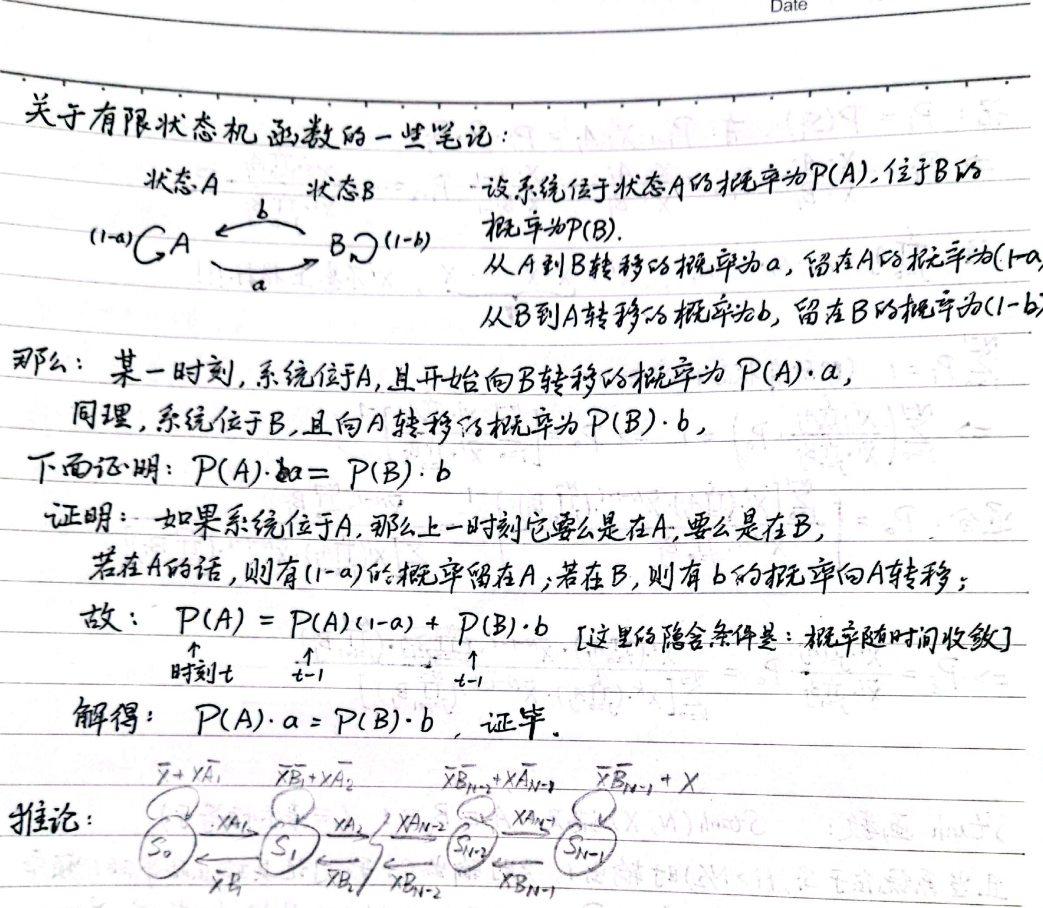 Date
关于有限状态机函数的一些笔记:
状态A 状态B
设系统位于状态A的概率为P(A),位于B的
概率为P(B).
b
(1-a) A B (1-b)
a
从A到B转移的概率为a, 留在A的概率为(1-a)
从B到A转移的概率为b, 留在B的概率为(1-b)
那么: 某一时刻,系统位于A,且开始向B转移的概率为 P(A)·a,
同理,系统位于B,且向A转移的概率为P(B)·b,
下面证明: P(A)·a = P(B)·b
证明: 如果系统位于A,那么上一时刻它要么是在A,要么是在B,
若在A的话,则有(1-a)的概率留在A;若在B,则有b的概率向A转移;
故: P(A) = P(A)(1-a) + P(B)·b [这里的隐含条件是: 概率随时间收敛]
↑ ↑ ↑
时刻t t-1 t-1
解得: P(A)·a = P(B)·b , 证毕.
X̅+XA̅₁ X̅B̅₁+XA̅₂ X̅B̅N-2+XA̅N-1 X̅B̅N-1+X
推论:
XA₁ XA₂ XAN-2 XAN-1
S₀ S₁ SN-2 SN-1
X̅B₁ X̅B₂ X̅BN-2 X̅BN-1